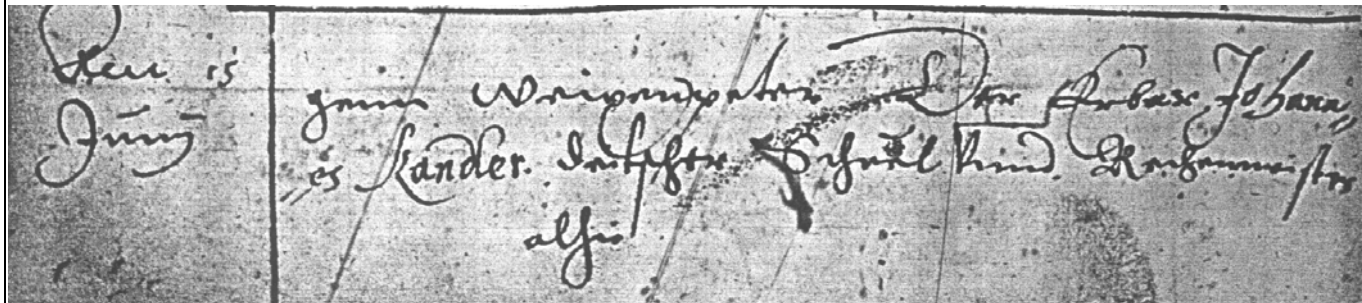 Den 15
Junij
genn Weixenpeter Der Erbar Johann,,
,,es Kandler. deutscher Schuel Vnnd. Rechenmeister
alhie